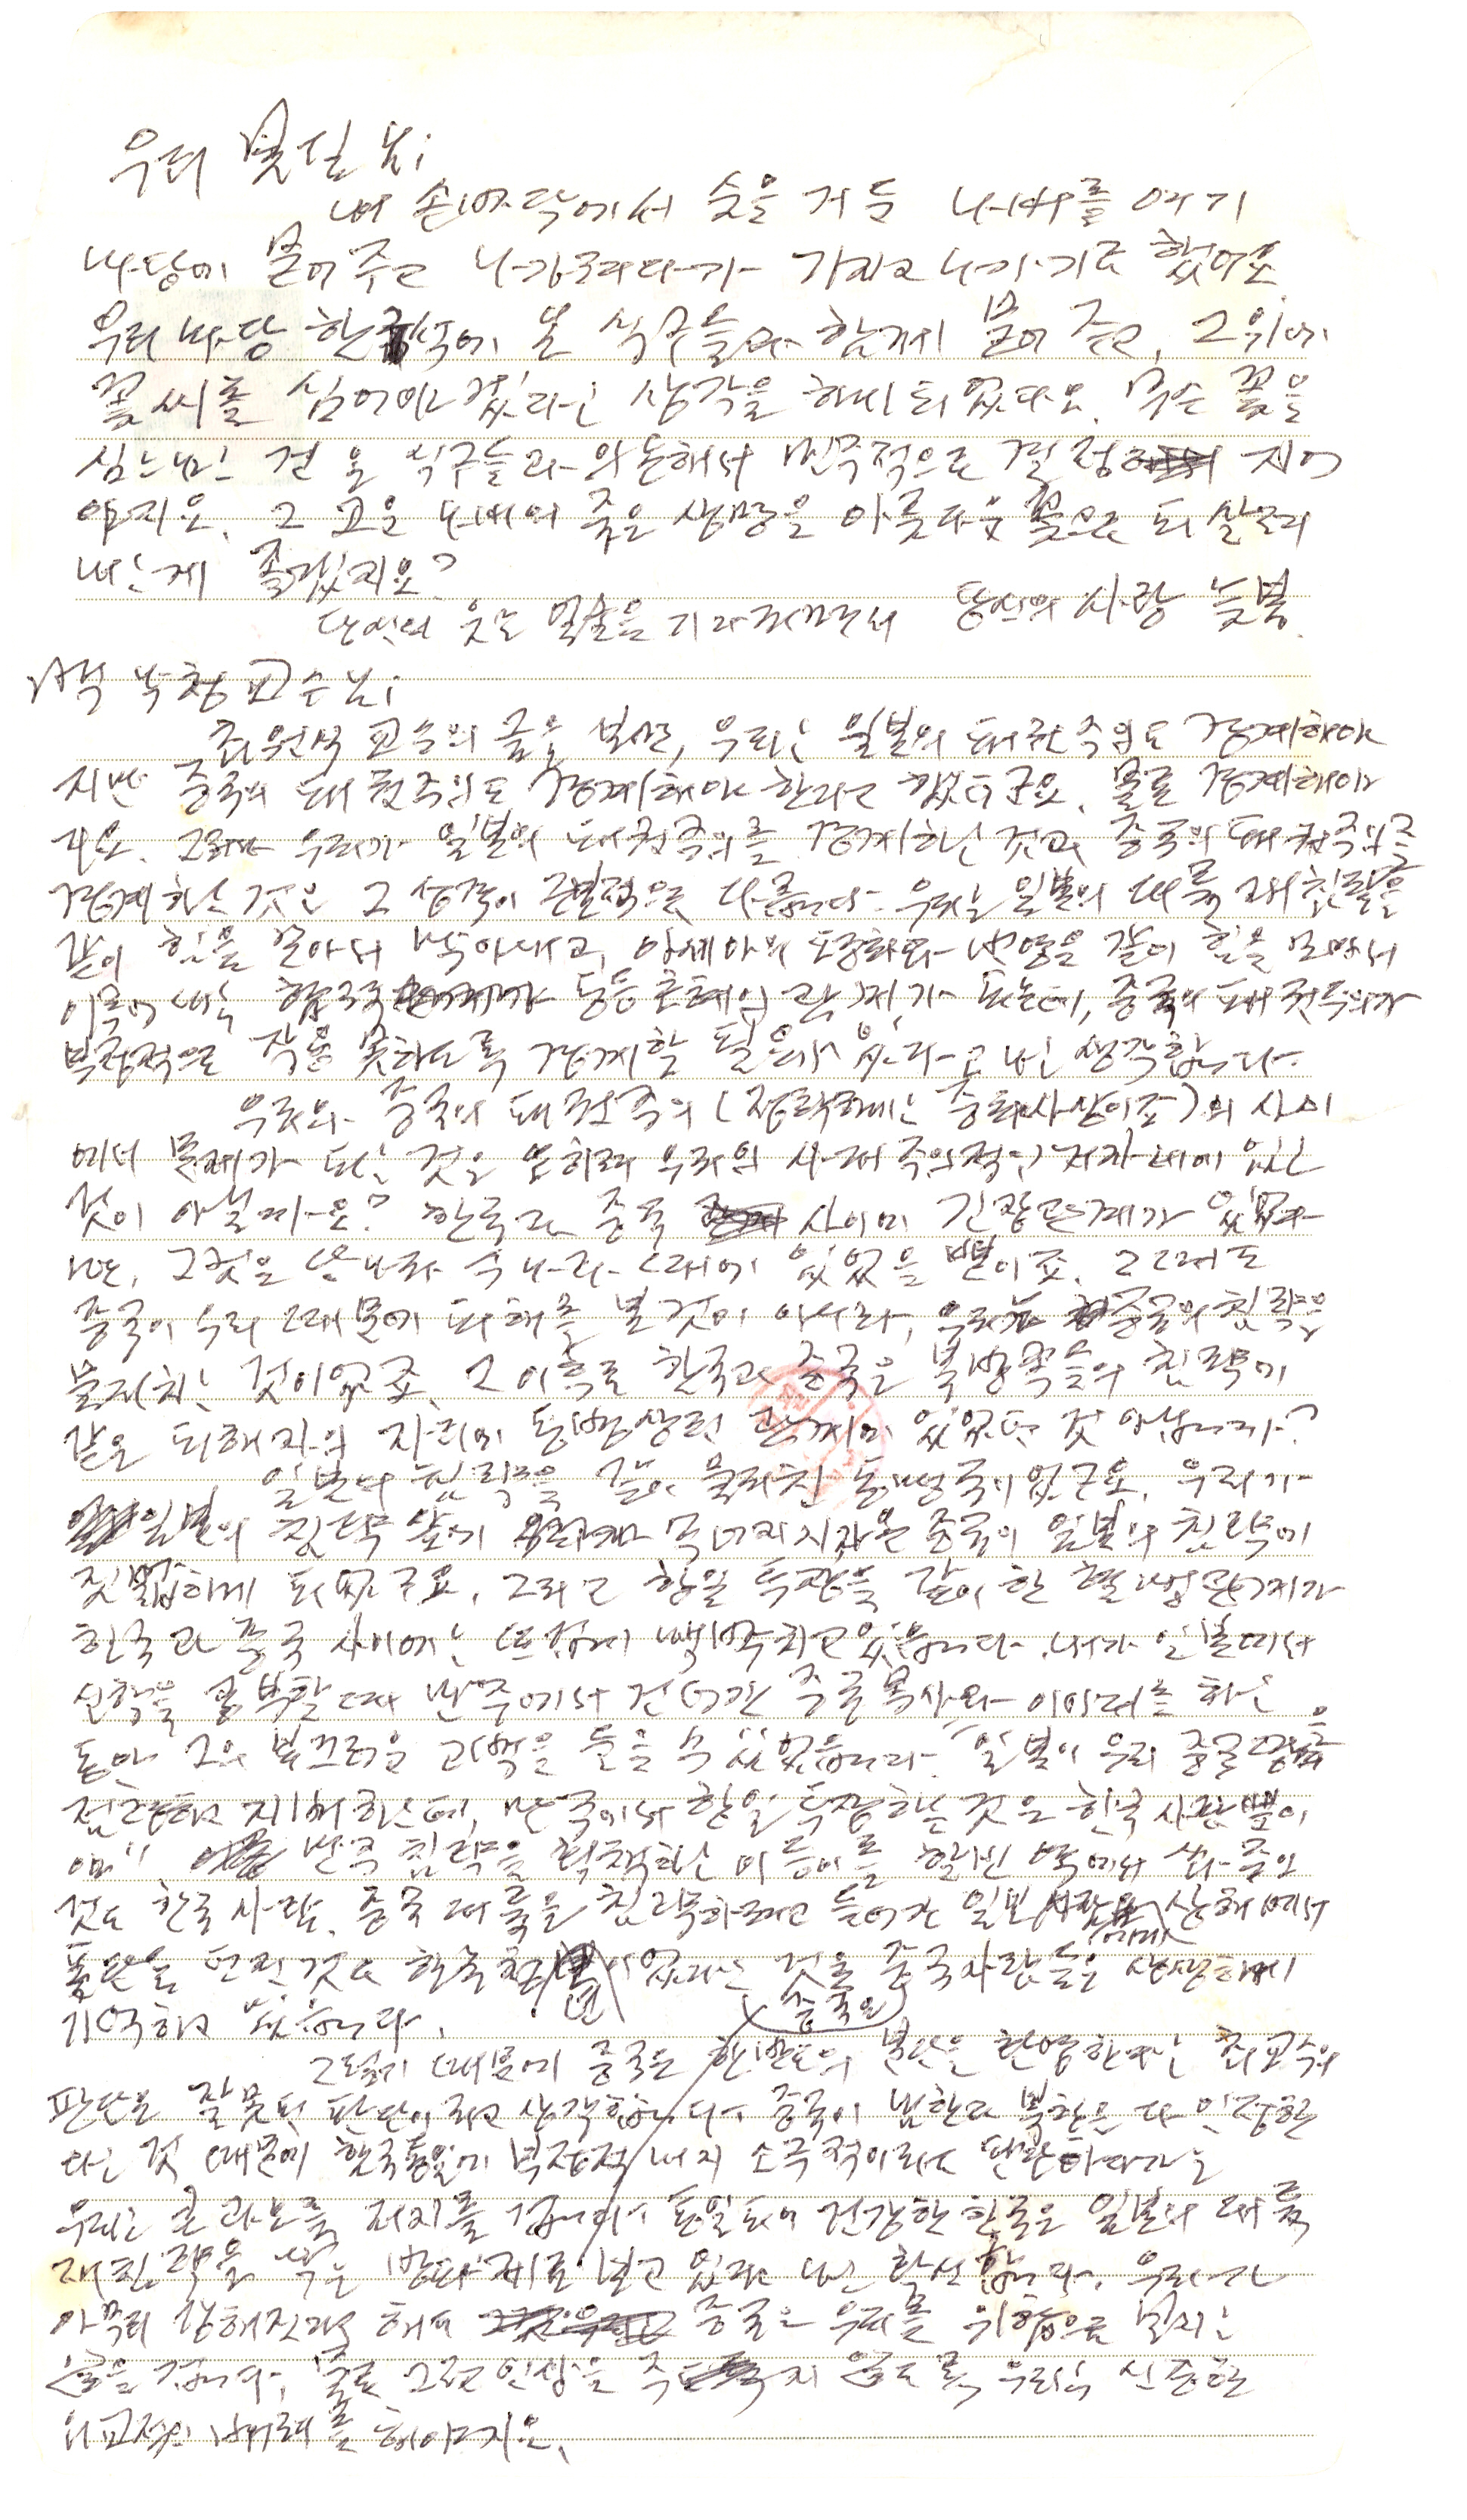 우리 봄길님;
내 손바닥에서 숨을 거둔 나비를 여기
마당에 묻어 주고 나가려다가 가지고 나가기로 했어요.
우리 마당 한구석에 온 식구들과 함께 묻어 주고, 그 위에
꽃씨를 심어야겠다는 생각을 하게 되었다오. 무슨 꽃을
심느냐는 건 온 식구들과 의논해서 민주적으로 결정 지어
야지요. 그 고운 나비의 죽은 생명을 아름다운 꽃으로 되살려
내는 게 좋겠지요?
당신의 웃는 얼굴을 기다리면서 당신의 사랑 늦봄.
백낙청 교수님;
최원식 교수의 글을 보면, 우리는 일본의 패권주의도 경계해야
지만 중국의 패권주의도 경계해야 한다고 했더군요. 물론 경계해야
지요. 그러나 우리가 일본의 패권주의를 경계하는 것과 중국의 패권주의를
경계하는 것은 그 성격이 근본적으로 다릅니다. 우리는 일본의 대륙 재침략을
같이 힘을 모아서 막아내고, 아세아의 평화와 번영을 같이 힘을 모아서
이룩해 내는 동등한 관계가 되는데, 중국의 패권주의가
부정적으로 작용 못하도록 경계할 필요가 있다고 나는 생각합니다.
우리와 중국의 패권주의 (정확하게는 중화사상이죠)의 사이
에서 문제가 되는 것은 오히려 우리의 사대주의적인 자세에 있는
것이 아닐까요? 한국과 중국 사이에 긴장관계가 있었다
면, 그것은 당나라 수나라 때에 있었을 뿐이죠. 그때도
중국이 우리 때문에 피해를 본 것이 아니라, 우리가 중국의 침략을
물리치는 것이었죠. 그 이후로 한국과 중국은 북방족들의 침략에
같은 피해자의 자리에 동병상련 관계에 있었던 것 아닙니까?
일본의 침략을 같이 물리친 동맹국이었군요. 우리가
일본의 침략 앞에 무너지자 중국이 일본의 침략에
짓밟히게 되었구요. 그리고 항일 투쟁을 같이 한 혈맹관계가
한국과 중국 사이에는 뜨겁게 맥박치고 있습니다. 내가 일본에서
신학을 공부할 때 만주에서 건너간 중국 목사와 이야기를 하는
동안 그의 부끄러운 고백을 들을 수 있었습니다. "일본이 우리 중국땅을
점령하고 지배하는데, 만주에서 항일 투쟁하는 것은 한국 사람들이
야." 만주 침략을 획책하는 이등이를 할빈 역에서 쏴 죽인
것도 한국 사람. 중국 대륙을 침략하려고 들어간 일본 상해에서
폭탄을 던진 것도 한국 청년이었다는 것을 중국사람들은 생생하게
기억하고 있습니다.
중국은
그렇기 때문에 중국은 한반도의 분단을 환영한다는 최교수의
판단은 잘못된 판단이라고 생각합니다. 중국이 남한과 북한을 다 인정한
다는 것 때문에 한국통일에 부정적 내지 소극적이라고 단정하다가는
우리는 큰 과오를 저지를 겁니다. 통일되어 건강한 한국은 일본의 대륙
재침략을 막는 방파제로 보고 있다고 나는 확신합니다. 우리가
아무리 강해진다고 해도 중국은 우리를 위협으로 보지는
않을 겁니다. 물론 그런 인상을 주지 않도록 우리는 신중한
외교적인 배려를 해야지요.